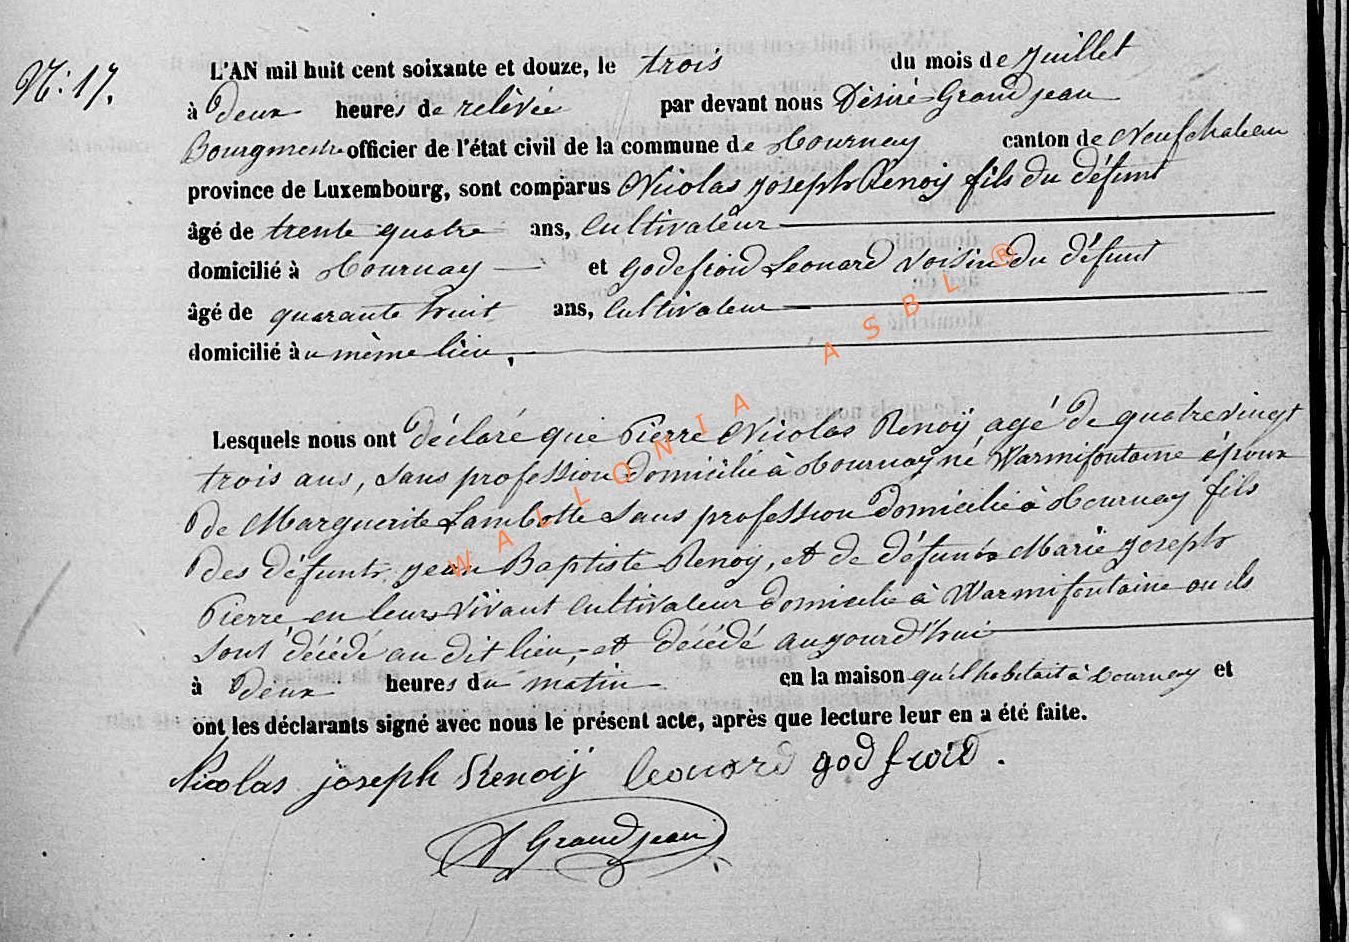 N: 17.
L'AN mil huit cent soixante et douze, le trois du mois de juillet
à deux heures de relevée par devant nous Désiré Grandjean
Bourgmestre officier de l'état civil de la commune de Tournay canton de Neufchateau
province de Luxembourg, sont comparus Nicolas Joseph Renoÿ fils du défunt
âgé de trente quatre ans, Cultivateur
domicilié à Tournay et Godefroid Leonard voisin du défunt
âgé de quarante huit ans, Cultivateur
domicilié àu même lieu,
Lesquels nous ont déclaré que Pierre Nicolas Renoÿ agé de quatrevingt
trois ans, sans profession domicilié à Tournay né Warmifontaine époux
de Marguerite Lambotte sans profession domicilié à Tournay fils
des défunts Jean Baptiste Renoy, et de défunts Marie Joseph
Pierre en leurs vivant Cultivateur domicilié à Warmifontaine ou ils
sont décédé au dit lieu, et décédé aujourd'hui
à deux heures du matin en la maison qu'il habitait à Tournay et
ont les déclarants signé avec nous le présent acte, après que lecture leur en a été faite.
Nicolas joseph Renoÿ Leonard godfroid.
D Grandjean
WALLONIA ASBL ®